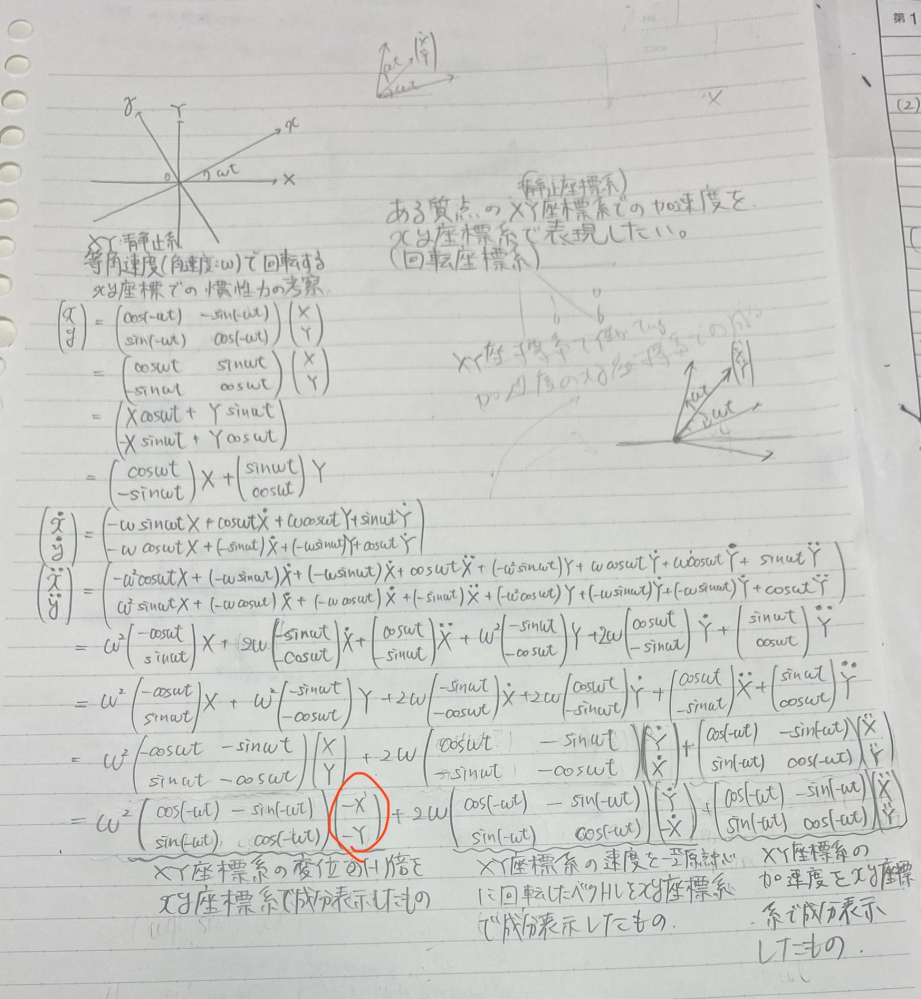 第1
(2)
ωt (Ẋ Ẏ)
ωt
X
y Y x
0 ωt X
XY:静止系
等角速度(角速度:ω)で回転する
xy座標での慣性力の考察
(静止座標系)
ある質点のXY座標系での加速度を
xy座標系で表現したい。
(回転座標系)
(x y) = (cos(-ωt) -sin(-ωt) sin(-ωt) cos(-ωt))(X Y)
= (cosωt sinωt -sinωt cosωt)(X Y)
= (Xcosωt + Ysinωt -Xsinωt + Ycosωt)
= (cosωt -sinωt)X + (sinωt cosωt)Y
ωt
ωt
(ẋ ẏ) = (-ωsinωtX + cosωtẊ + ωcosωtY + sinωtẎ -ωcosωtX + (-sinωt)Ẋ + (-ωsinωt)Y + cosωtẎ)
(ẍ ÿ) = (-ω²cosωtX + (-ωsinωt)Ẋ + (-ωsinωt)Ẋ + cosωtẌ + (-ω²sinωt)Y + ωcosωtẎ + ωcosωtẎ + sinωtŸ ω²sinωtX + (-ωcosωt)Ẋ + (-ωcosωt)Ẋ + (-sinωt)Ẍ + (-ω²cosωt)Y + (-ωsinωt)Ẏ + (-ωsinωt)Ẏ + cosωtŸ)
= ω²(-cosωt sinωt)X + 2ω(-sinωt -cosωt)Ẋ + (cosωt -sinωt)Ẍ + ω²(-sinωt -cosωt)Y + 2ω(cosωt -sinωt)Ẏ + (sinωt cosωt)Ÿ
= ω²(-cosωt sinωt)X + ω²(-sinωt -cosωt)Y + 2ω(-sinωt -cosωt)Ẋ + 2ω(cosωt -sinωt)Ẏ + (cosωt -sinωt)Ẍ + (sinωt cosωt)Ÿ
= ω²(-cosωt -sinωt sinωt -cosωt)(X Y) + 2ω(cosωt -sinωt -sinωt -cosωt)(Ẏ Ẋ) + (cos(-ωt) -sin(-ωt) sin(-ωt) cos(-ωt))(Ẍ Ÿ)
= ω²(cos(-ωt) -sin(-ωt) sin(-ωt) cos(-ωt))(-X -Y) + 2ω(cos(-ωt) -sin(-ωt) sin(-ωt) cos(-ωt))(Ẏ -Ẋ) + (cos(-ωt) -sin(-ωt) sin(-ωt) cos(-ωt))(Ẍ Ÿ)
XY座標系の変位の(-1)倍を
xy座標系で成分表示したもの
XY座標系の速度を
に回転したベクトルをxy座標系
で成分表示したもの.
XY座標系の
加速度をxy座標
系で成分表示
したもの.